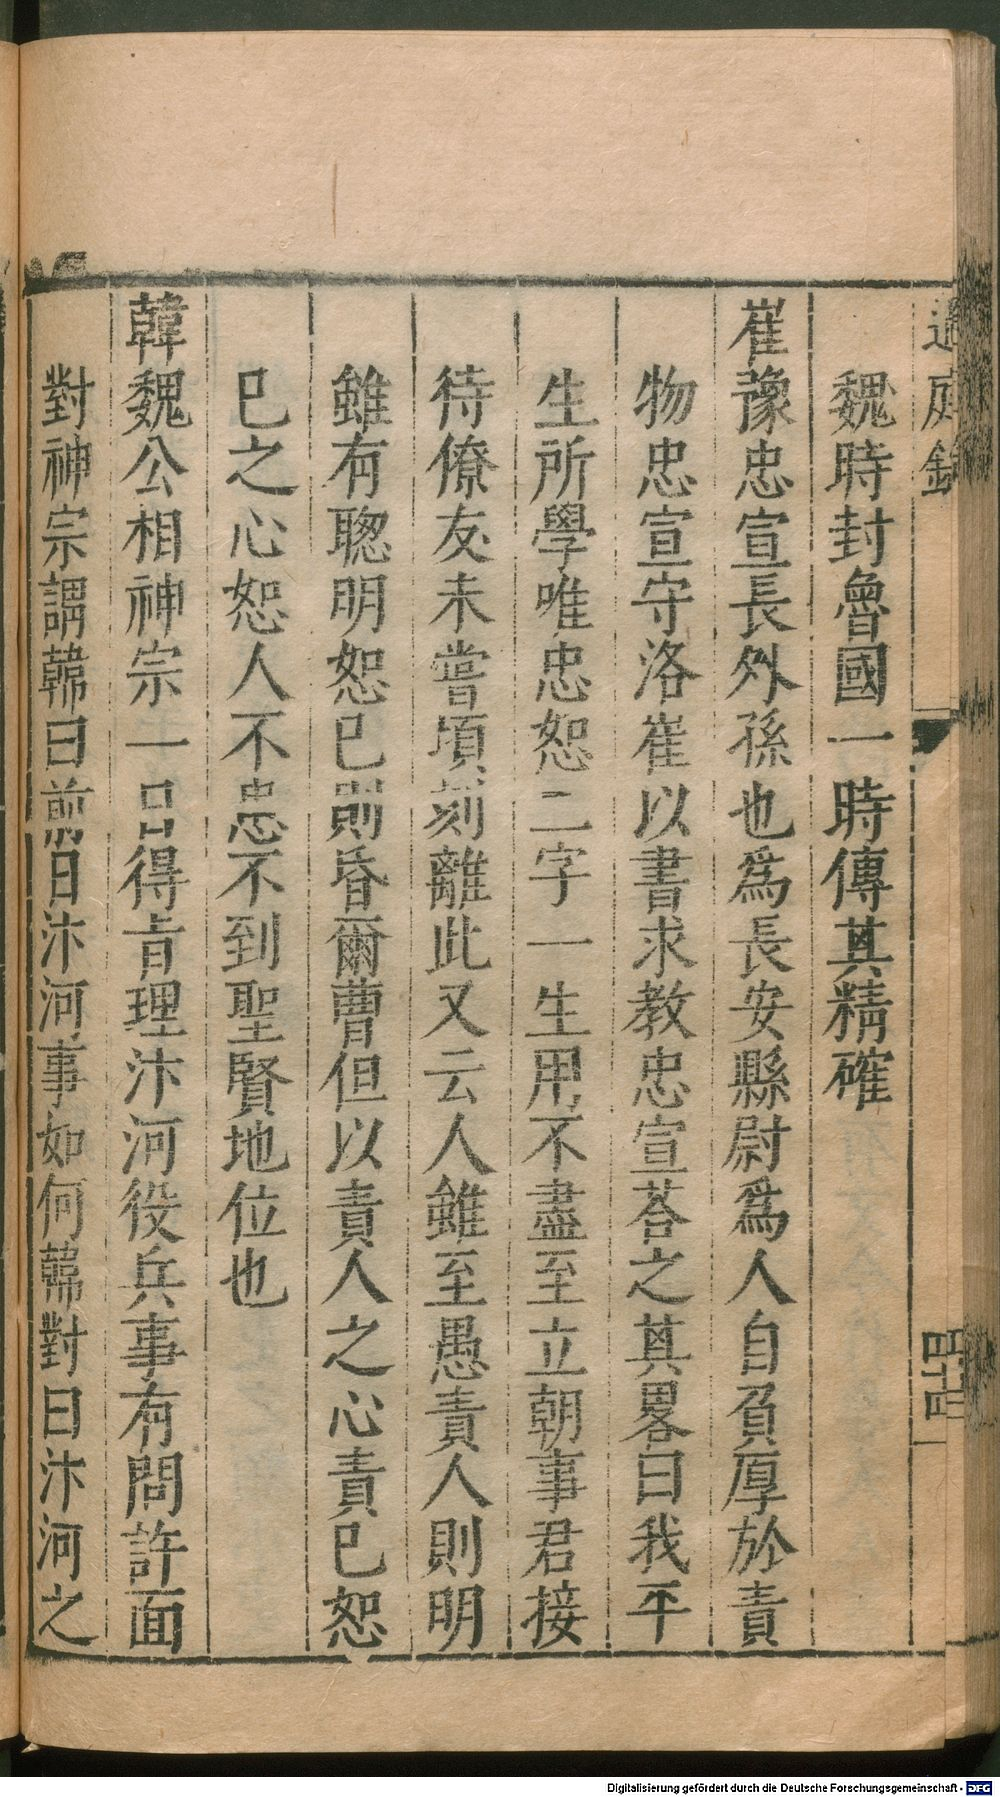 過庭錄
四十四
魏時封魯國一時傳其精確
崔豫忠宣長外孫也爲長安縣尉爲人自負厚於責
物忠宣守洛崔以書求教忠宣荅之其畧曰我平
生所學唯忠恕二字一生用不盡至立朝事君接
待僚友未嘗頃刻離此又云人雖至愚責人則明
雖有聰明恕已則昏爾曹但以責人之心責已恕
已之心恕人不忠不到聖賢地位也
韓魏公相神宗一日得旨理汴河役兵事有問許面
對神宗謂韓曰前日汴河事如何韓對曰汴河之
Digitalisierung gefördert durch die Deutsche Forschungsgemeinschaft - DFG